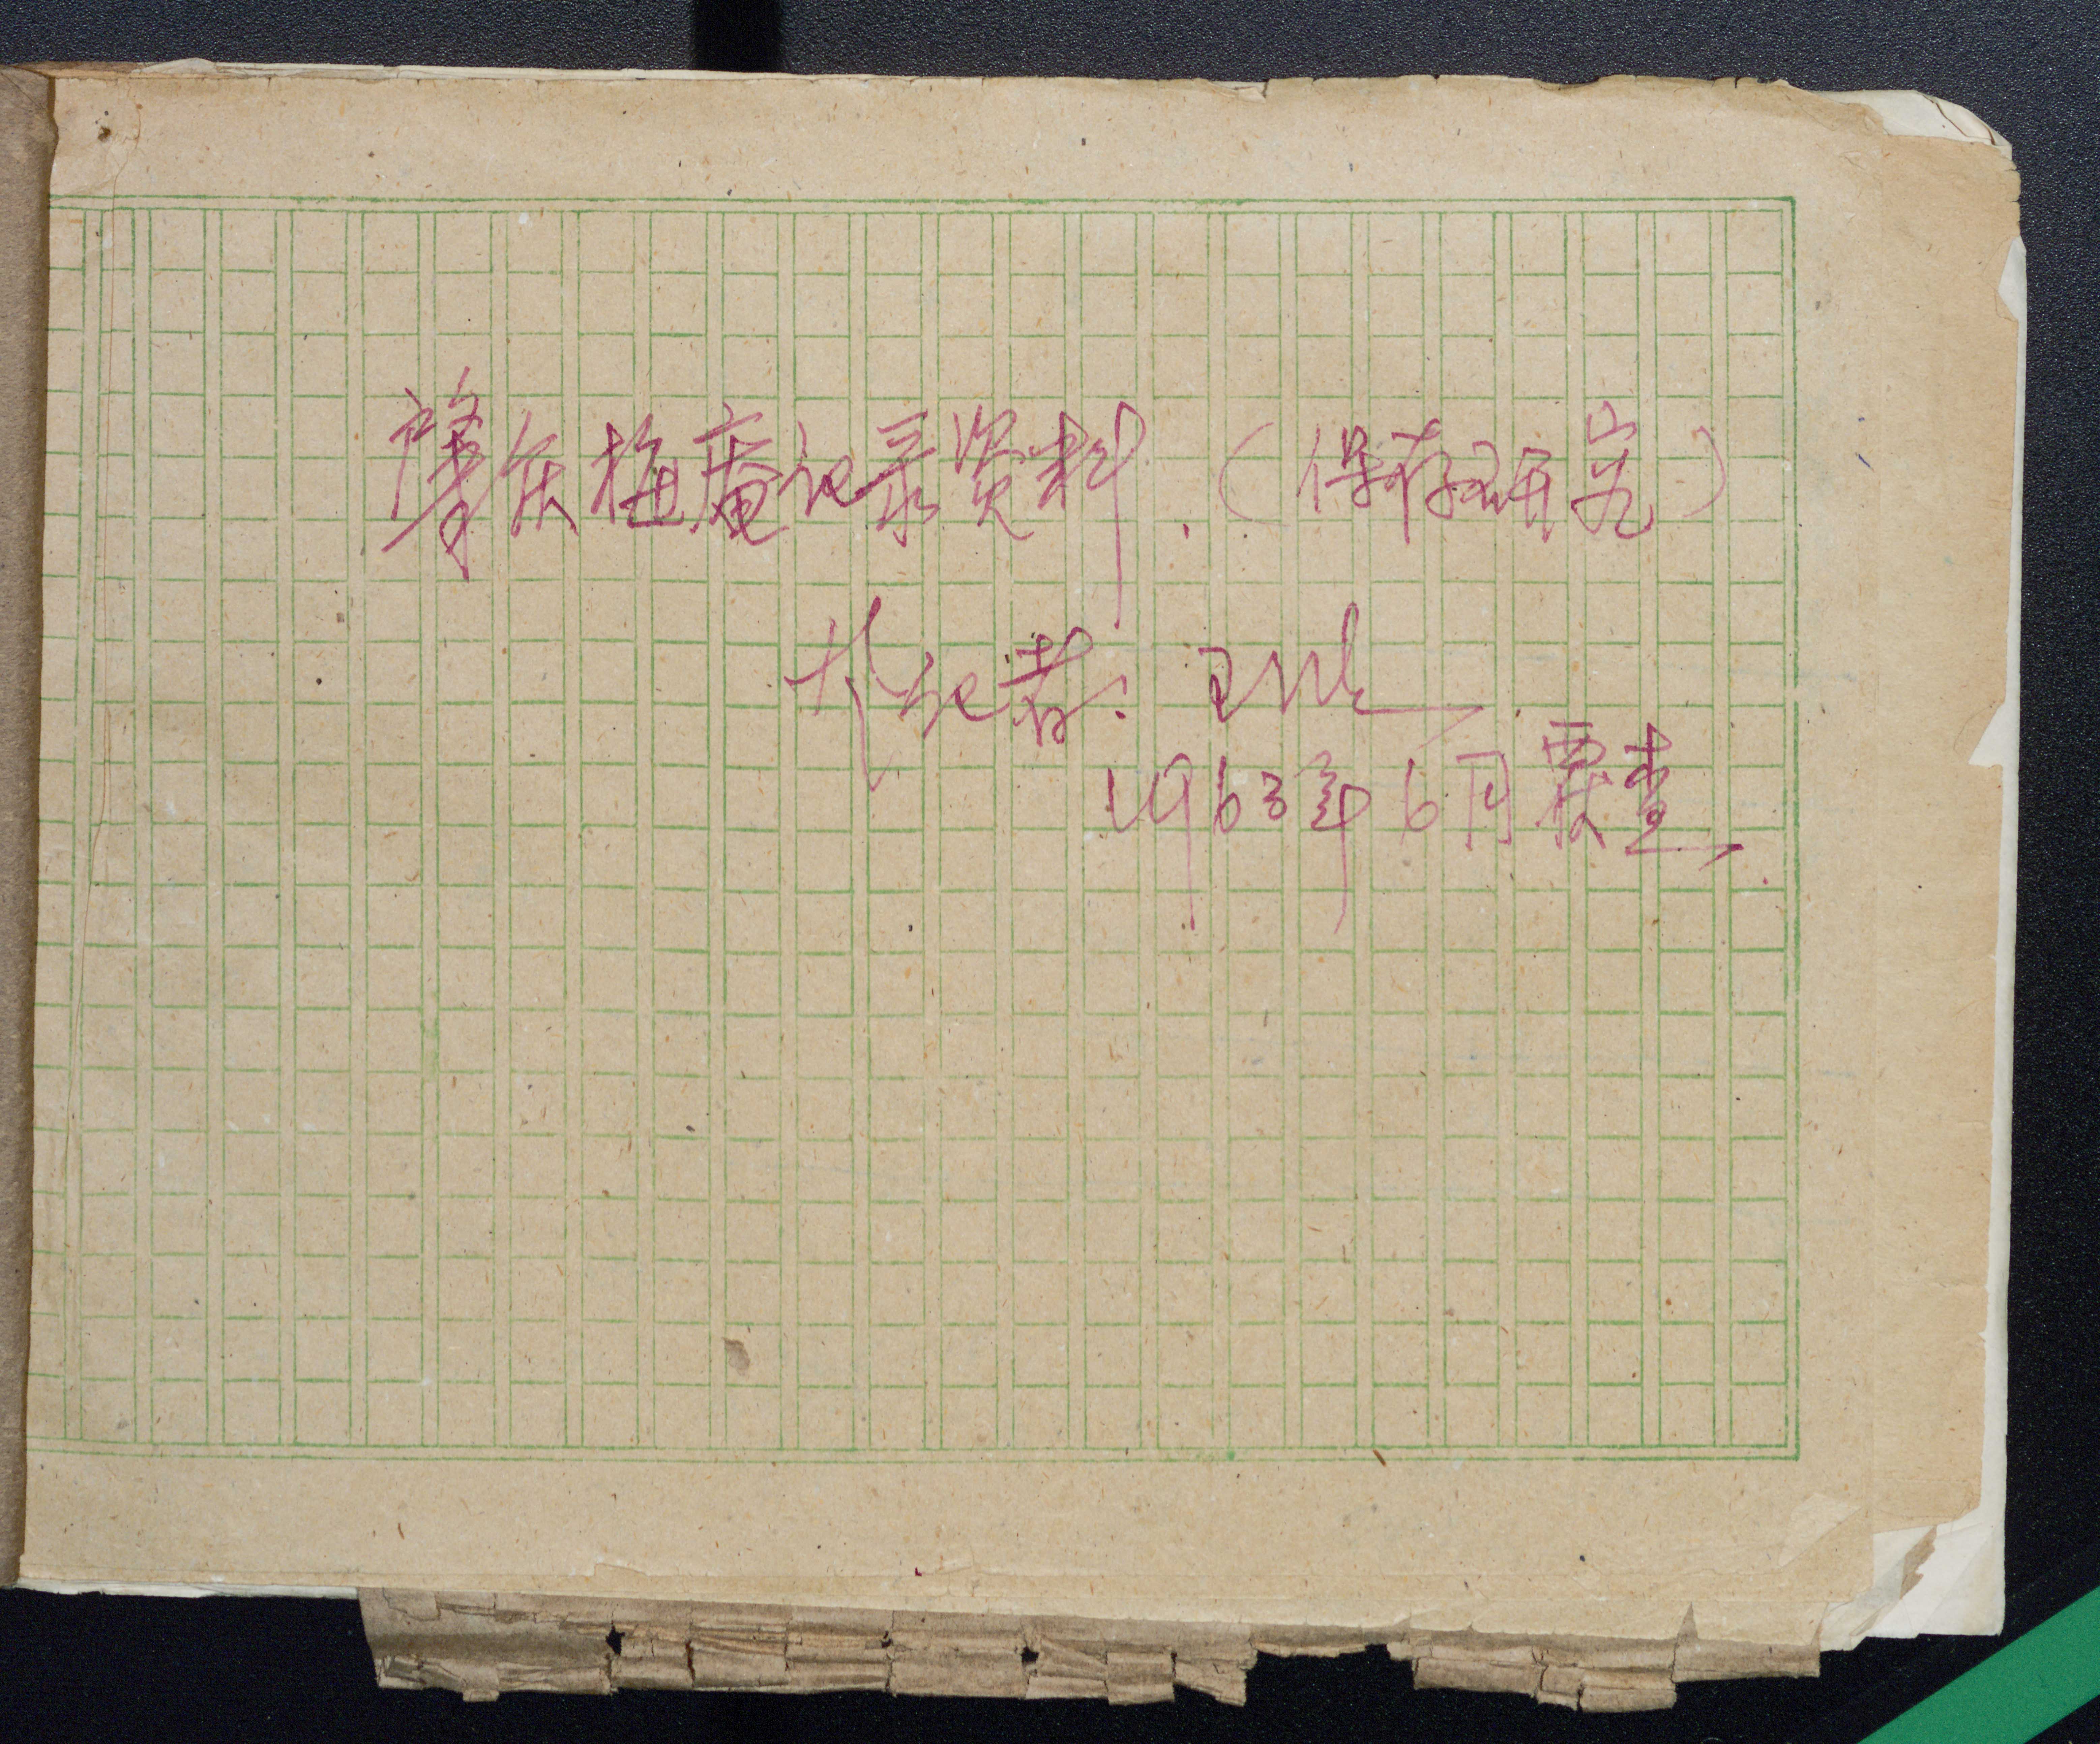 肇庆梅庵记录资料.（保存研究）
札记者：
1963年6月覆查.